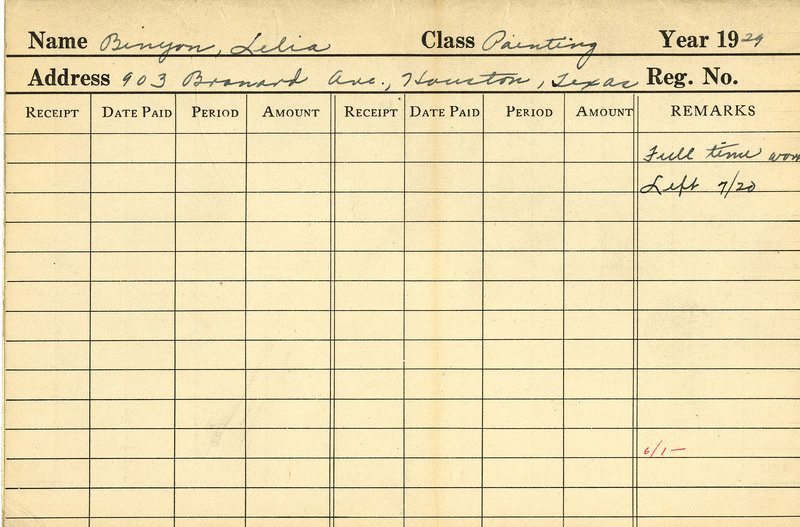 Name Binyon, Lelia Class Painting Year 1929
Address 903 Branard Ave., Houston, Texas Reg. No.
RECEIPT DATE PAID PERIOD AMOUNT RECEIPT DATE PAID PERIOD AMOUNT REMARKS
Full time
Left 7/20
6/1-